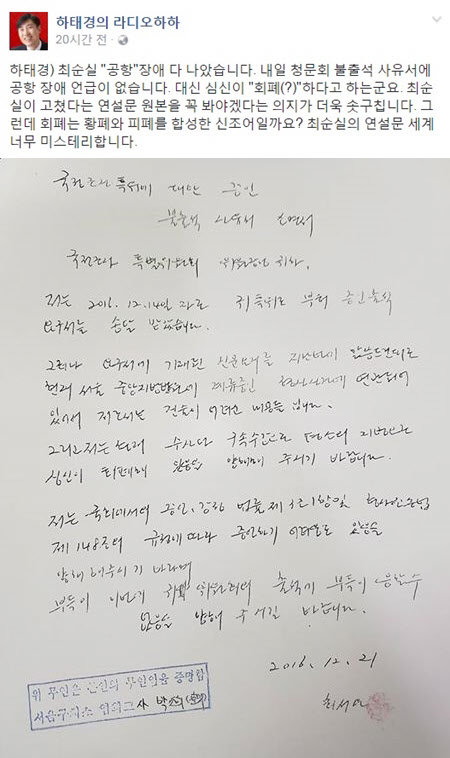 하태경의 라디오하하
20시간 전 ·
하태경) 최순실 "공항"장애 다 나았습니다. 내일 청문회 불출석 사유서에
공항 장애 언급이 없습니다. 대신 심신이 "회폐(?)"하다고 하는군요. 최순
실이 고쳤다는 연설문 원본을 꼭 봐야겠다는 의지가 더욱 솟구칩니다. 그
런데 회폐는 황폐와 피폐를 합성한 신조어일까요? 최순실의 연설문 세계
너무 미스테리합니다.
국정조사 특위에 대한 증인
불출석 사유서 소명서
국정조사 특별위원회 위원장님 귀하.
저는 2016. 12. 14일 자로 귀 특위로 부터 증인출석
요구서를 송달 받았습니다.
그러나 요구서에 기재된 신문요지를
현재 서울 중앙지방법원에 계류중인 형사사건에 연관되어
있어서 저로서는 진술이 어려운 내용들 입니다.
그리고 저는 현재 수사와 구속수감으로
심신이 회폐해 있음을 양해해 주시기 바랍니다.
저는 국회에서의 증언, 감정 법률 제3조1항 및 형사소송법
제148조의 규정에 따라 증언하기 어려움을
양해해주시기 바라며
부득이 이번에 귀 위원회의 출석에 부득이 응할 수
없음을 양해 주시길 바랍니다.
2016. 12. 21
최서원
위 무인은 본인의 무인임을 증명함
서울구치소